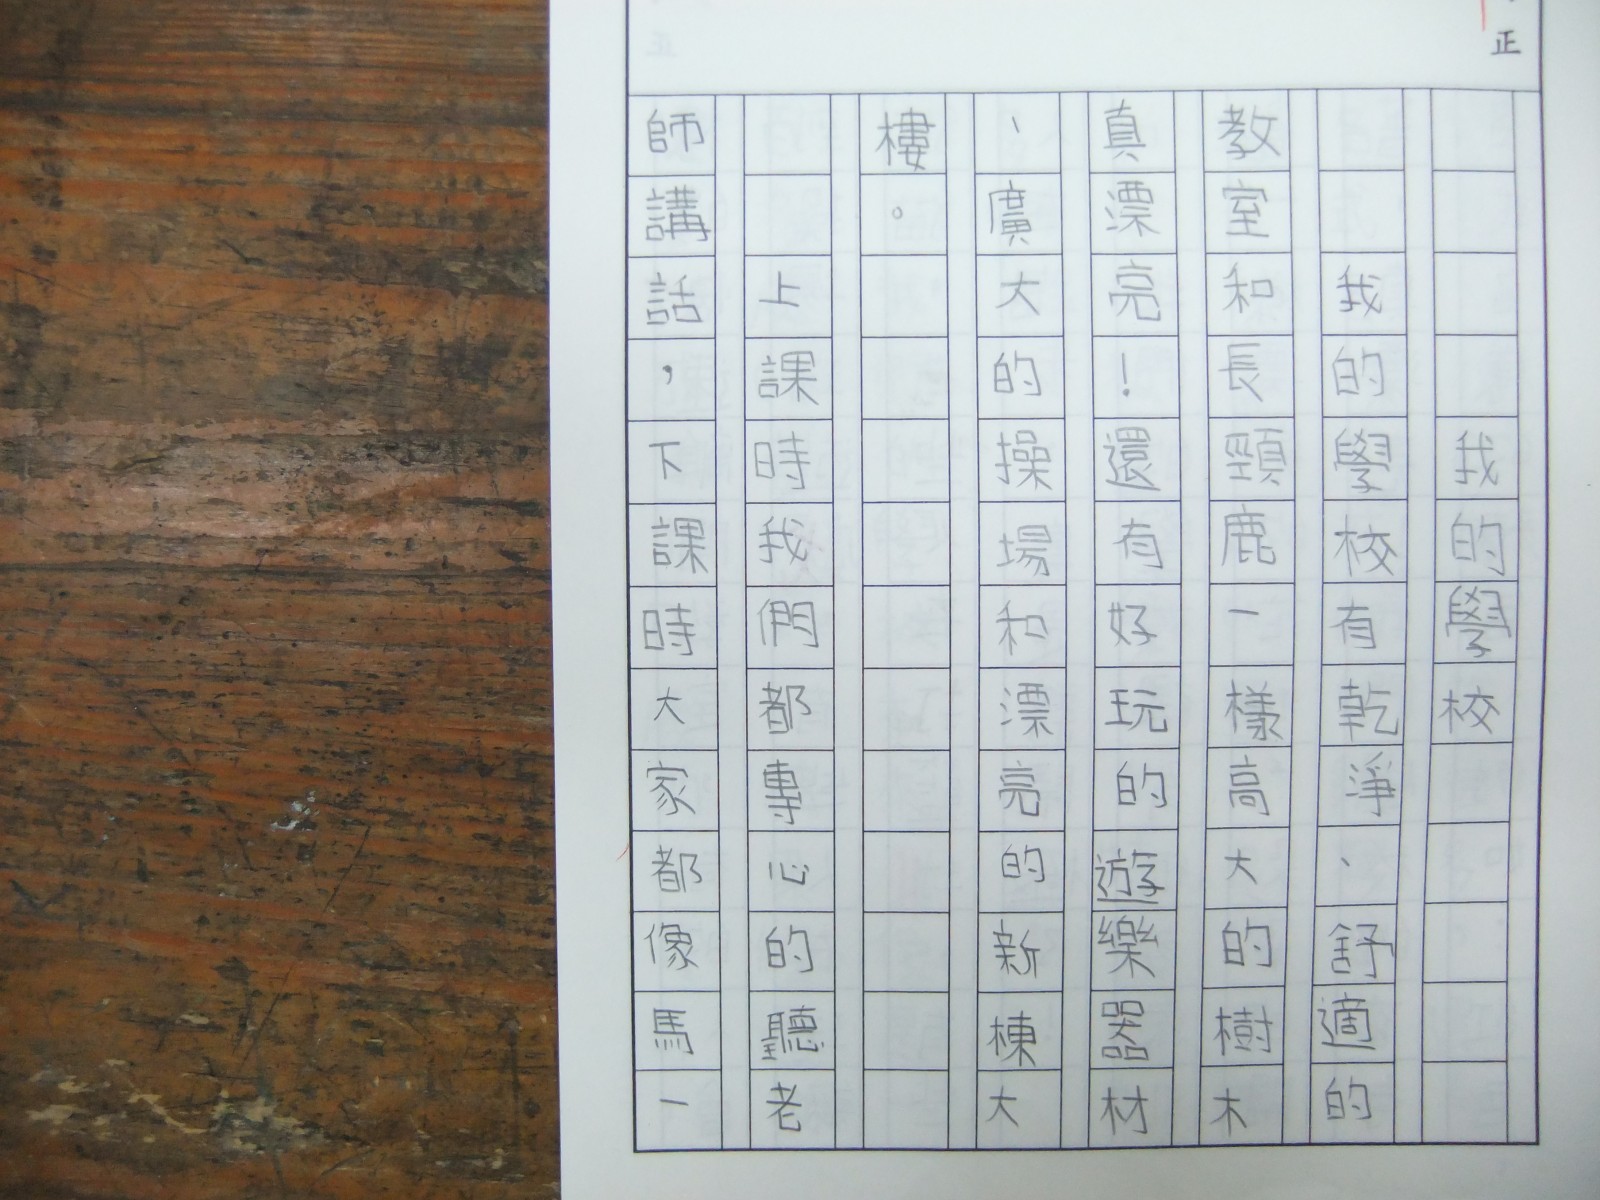 正
我的學校
我的學校有乾淨、舒適的
教室和長頸鹿一樣高大的樹木
真漂亮!還有好玩的遊樂器材
、廣大的操場和漂亮的新棟大
樓。
上課時我們都專心的聽老
師講話,下課時大家都像馬一